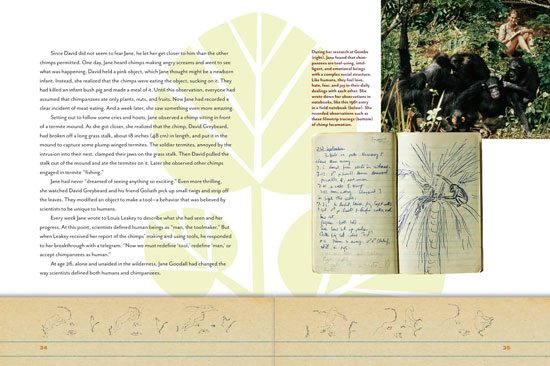 Since David did not seem to fear Jane, he let her get closer to him than the other
chimps permitted. One day, Jane heard chimps making angry screams and went to see
what was happening. David held a pink object, which Jane thought might be a newborn
infant. Instead, she realized that the chimps were eating the object, sucking on it. They
had killed an infant bush pig and made a meal of it. Until this observation, everyone had
assumed that chimpanzees ate only plants, nuts, and fruits. Now Jane had recorded a
clear incident of meat-eating. And a week later, she saw something even more amazing.
Setting out to follow some cries and hoots, Jane observed a chimp sitting in front
of a termite mound. As she got closer, she realized that the chimp, David Greybeard,
had broken off a long grass stalk, about 18 inches (48 cm) in length, and put it in the
mound to capture some plump winged termites. The soldier termites, annoyed by the
intrusion into their nest, clamped their jaws on the grass stalk. Then David pulled the
stalk out of the mound and ate the termites on it. Later she observed other chimps
engaged in termite "fishing."
Jane had never "dreamed of seeing anything so exciting." Even more thrilling,
she watched David Greybeard and his friend Goliath pick up small twigs and strip off
the leaves. They modified an object to make a tool—a behavior that was believed by
scientists to be unique to humans.
Every week Jane wrote to Louis Leakey to describe what she had seen and her
progress. At this point, scientists defined human beings as "man, the toolmaker." But
when Leakey received her report of the chimps' making and using tools, he responded
to her breakthrough with a telegram: "Now we must redefine 'tool,' redefine 'man,' or
accept chimpanzees as human."
At age 26, alone and unaided in the wilderness, Jane Goodall had changed the
way scientists defined both humans and chimpanzees.
34
During her research at Gombe
(right), Jane found that chim-
panzees are tool-using, intel-
ligent, and emotional beings
with a complex social structure.
Like humans, they feel love,
hate, fear, and joy in their daily
dealings with each other. She
wrote down her observations in
notebooks, like this 1961 entry
in a field notebook (below). She
recorded observations such as
these filmstrip tracings (bottom)
of chimp locomotion.
35